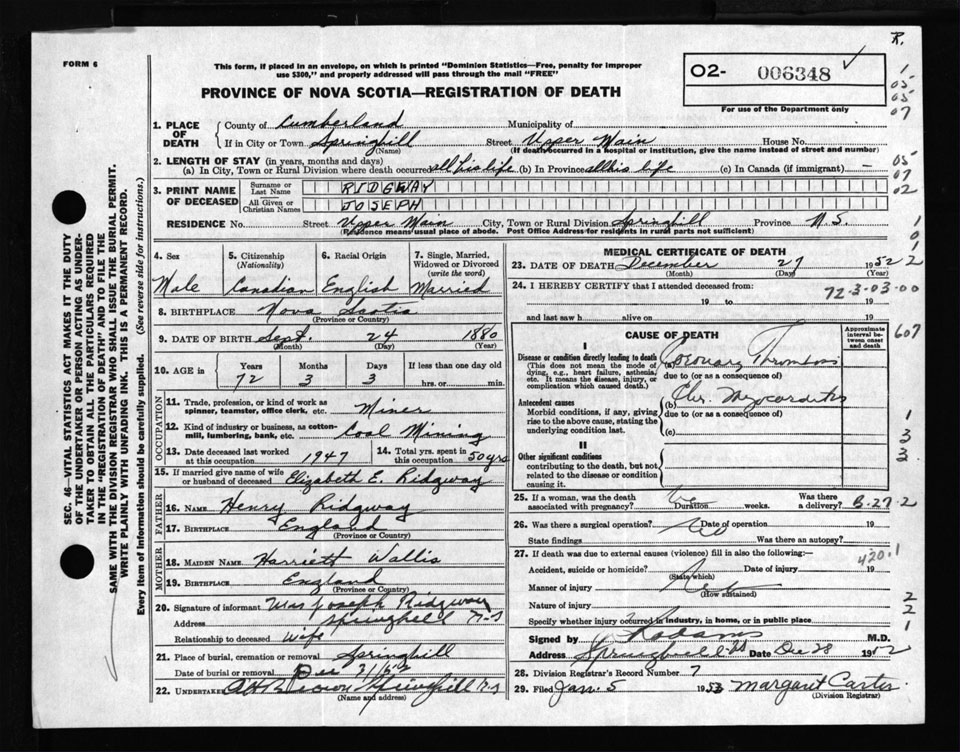 R.
FORM 6
This form, if placed in an envelope, on which is printed "Dominion Statistics—Free, penalty for improper
use $300," and properly addressed will pass through the mail "FREE"
PROVINCE OF NOVA SCOTIA—REGISTRATION OF DEATH
O2- 006348
For use of the Department only
1
05-
05-
07
1. PLACE OF DEATH
County of Cumberland Municipality of
If in City or Town Springhill Street Upper Main House No.
(Name) (If death occurred in a hospital or institution, give the name instead of street and number)
2. LENGTH OF STAY (in years, months and days)
(a) In City, Town or Rural Division where death occurred all his life (b) In Province all his life (c) In Canada (if immigrant) -
05-
07
02
3. PRINT NAME OF DECEASED
Surname or Last Name RIDGWAY
All Given or Christian Names JOSEPH
RESIDENCE No. Street Upper Main City, Town or Rural Division Springhill Province N.S.
(Residence means usual place of abode. Post Office Address for residents in rural parts not sufficient)
4. Sex Male
5. Citizenship (Nationality) Canadian
6. Racial Origin English
7. Single, Married, Widowed or Divorced (write the word) Married
8. BIRTHPLACE Nova Scotia
(Province or Country)
9. DATE OF BIRTH Sept. 24 1880
(Month) (Day) (Year)
10. AGE in Years Months Days If less than one day old
72 3 3 hrs. or min.
OCCUPATION
11. Trade, profession, or kind of work as
spinner, teamster, office clerk, etc. Miner
12. Kind of industry or business, as cotton-
mill, lumbering, bank, etc. Coal Mining
13. Date deceased last worked
at this occupation 1947
14. Total yrs. spent in
this occupation 50 yrs
15. If married give name of wife
or husband of deceased Elizabeth E. Ridgway
FATHER
16. NAME Henry Ridgway
17. BIRTHPLACE England
(Province or Country)
MOTHER
18. MAIDEN NAME Harriett Wallis
19. BIRTHPLACE England
(Province or Country)
20. Signature of informant Mrs Joseph Ridgway
Address Springhill N-S
Relationship to deceased Wife
21. Place of burial, cremation or removal Springhill
Date of burial or removal Dec 31/52
22. Undertaker Brown Springhill N-S
(Name and address)
MEDICAL CERTIFICATE OF DEATH
23. DATE OF DEATH December 27 1952
(Month) (Day) (Year)
24. I HEREBY CERTIFY that I attended deceased from:
72-3-03-00
19 to 19
and last saw h alive on 19
CAUSE OF DEATH
Approximate interval between onset and death
607
I
Disease or condition directly leading to death
(This does not mean the mode of
dying, e.g., heart failure, asthenia,
etc. It means the disease, injury, or
complication which caused death.)
(a) Coronary Thrombosis
due to (or as a consequence of)
Antecedent causes
Morbid conditions, if any, giving
rise to the above cause, stating the
underlying condition last.
(b) Chr. Myocarditis
due to (or as a consequence of)
(c)
II
Other significant conditions
contributing to the death, but not
related to the disease or condition
causing it.
1
3
3.
25. If a woman, was the death
associated with pregnancy? Duration weeks. Was there
a delivery? B-27-2
26. Was there a surgical operation? No Date of operation 19
State findings Was there an autopsy?
27. If death was due to external causes (violence) fill in also the following:—
420.1
Accident, suicide or homicide? Date of injury 19
(State which)
Manner of injury
(How sustained)
Nature of injury
Specify whether injury occurred in industry, in home, or in public place
2
2
1
Signed by M.D.
Address Springhill NS Date Dec 28 1952
28. Division Registrar's Record Number 7
29. Filed Jan. 5 1953 Margaret Carter
(Division Registrar)
SEC. 46—VITAL STATISTICS ACT MAKES IT THE DUTY
OF THE UNDERTAKER OR PERSON ACTING AS UNDER-
TAKER TO OBTAIN ALL THE PARTICULARS REQUIRED
IN THE "REGISTRATION OF DEATH" AND TO FILE THE
SAME WITH THE DIVISION REGISTRAR WHO SHALL ISSUE THE BURIAL PERMIT.
WRITE PLAINLY WITH UNFADING INK. THIS IS A PERMANENT RECORD.
Every item of information should be carefully supplied. (See reverse side for instructions).